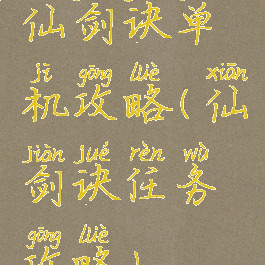 仙剑诀单
jī gōng lüè xiān
机攻略(仙
jiàn jué rèn wù
剑诀任务
gōng lüè
攻略)